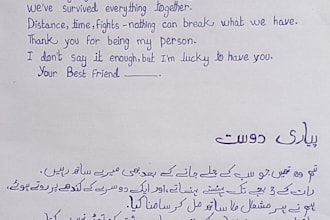 we've survived everything together.
Distance, time, fights - nothing can break what we have.
Thank you for being my person.
I don't say it enough, but I'm lucky to have you.
Your Best Friend ______.
پیاری دوست
تم وہ تھیں جو سب کے چلے جانے کے بعد بھی میرے ساتھ رہیں۔
رات کے 3 بجے تک ہنستے ہنساتے، اور ایک دوسرے کے کندھے پر روتے ہوئے،
ہم نے ہر مشکل کا ساتھ مل کر سامنا کیا۔